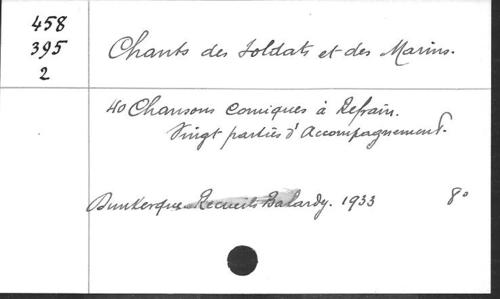 458
395
2
Chants des Soldats et des Marins.
40 Chansons Comiques à Refrain.
Vingt parties d'Accompagnement.
Dunkerque. Recueils Balardy. 1933 8°